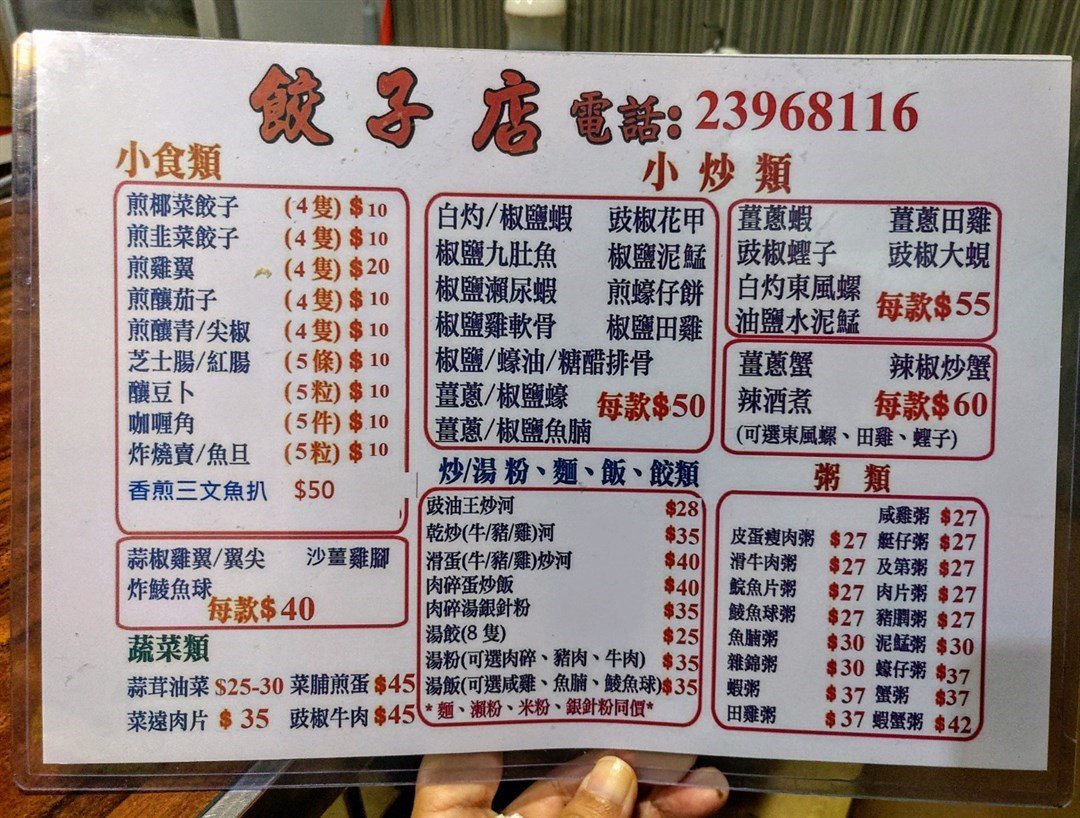 餃子店 電話: 23968116
小食類
煎椰菜餃子 (4隻) $10
煎韭菜餃子 (4隻) $10
煎雞翼 (4隻) $20
煎釀茄子 (4隻) $10
煎釀青/尖椒 (4隻) $10
芝士腸/紅腸 (5條) $10
釀豆卜 (5粒) $10
咖喱角 (5件) $10
炸燒賣/魚旦 (5粒) $10
香煎三文魚扒 $50
蒜椒雞翼/翼尖 沙薑雞腳
炸鯪魚球
每款$40
蔬菜類
蒜茸油菜 $25-30 菜脯煎蛋 $45
菜遠肉片 $ 35 豉椒牛肉 $45
小炒類
白灼/椒鹽蝦 豉椒花甲
椒鹽九肚魚 椒鹽泥鯭
椒鹽瀨尿蝦 煎蠔仔餅
椒鹽雞軟骨 椒鹽田雞
椒鹽/蠔油/糖醋排骨
薑蔥/椒鹽蠔 每款$50
薑蔥/椒鹽魚腩
薑蔥蝦 薑蔥田雞
豉椒蟶子 豉椒大蜆
白灼東風螺 每款$55
油鹽水泥鯭
薑蔥蟹 辣椒炒蟹
辣酒煮 每款$60
(可選東風螺、田雞、蟶子)
炒/湯 粉、麵、飯、餃類
豉油王炒河 $28
乾炒(牛/豬/雞)河 $35
滑蛋(牛/豬/雞)炒河 $40
肉碎蛋炒飯 $40
肉碎湯銀針粉 $35
湯餃(8隻) $25
湯粉(可選肉碎、豬肉、牛肉) $35
湯飯(可選咸雞、魚腩、鯪魚球) $35
*麵、瀨粉、米粉、銀針粉同價*
粥類
咸雞粥 $27
皮蛋瘦肉粥 $27 艇仔粥 $27
滑牛肉粥 $27 及第粥 $27
鯇魚片粥 $27 肉片粥 $27
鯪魚球粥 $27 豬膶粥 $27
魚腩粥 $30 泥鯭粥 $30
雜錦粥 $30 蠔仔粥 $37
蝦粥 $37 蟹粥 $37
田雞粥 $37 蝦蟹粥 $42